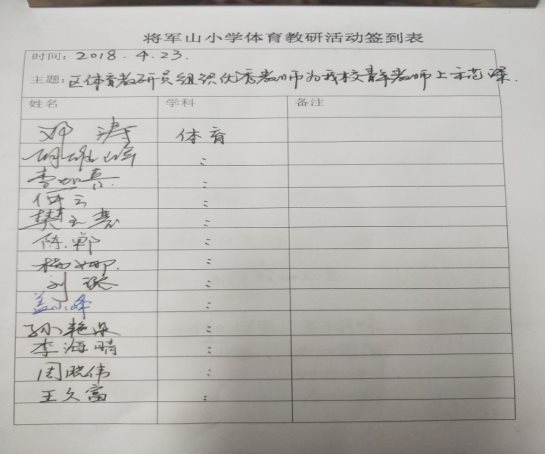 将军山小学体育教研活动签到表
时间：2018.4.23.
主题：区体育教研员组织优秀教师为我校青年教师上示范课.
姓名 学科 备注
邓涛 体育
胡雄峰 :
李 :
伍云 :
樊玉慧 :
陈郸 :
杨娜 :
刘 :
盖小峰 :
孙艳 :
李海晴 :
周晓伟 :
王久富 :